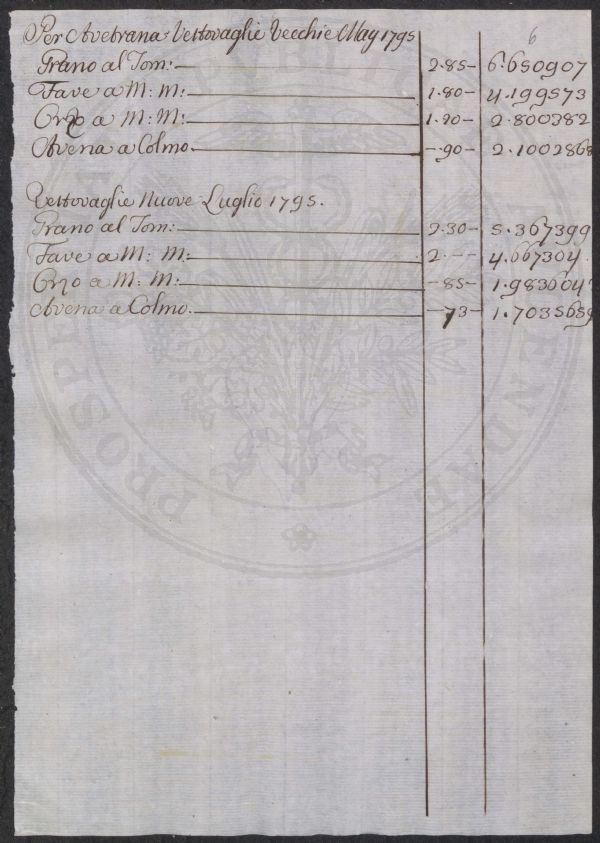 6
Per Avetrana Vettovaglie Vecchie May 1795
Grano al Tom: 2.85 6.650907
Fave a M: M: 1.80 4.199573
Orzo a M: M: 1.20 2.800382
Avena a Colmo 90 2.1002868
Vettovaglie Nuove Luglio 1795.
Grano al Tom: 2.30 5.367399
Fave a M: M: 2.-- 4.667304
Orzo a M: M: 85 1.983604
Avena a Colmo 73 1.7035659
PROSPERITATI PUBLICAE AUGENDAE